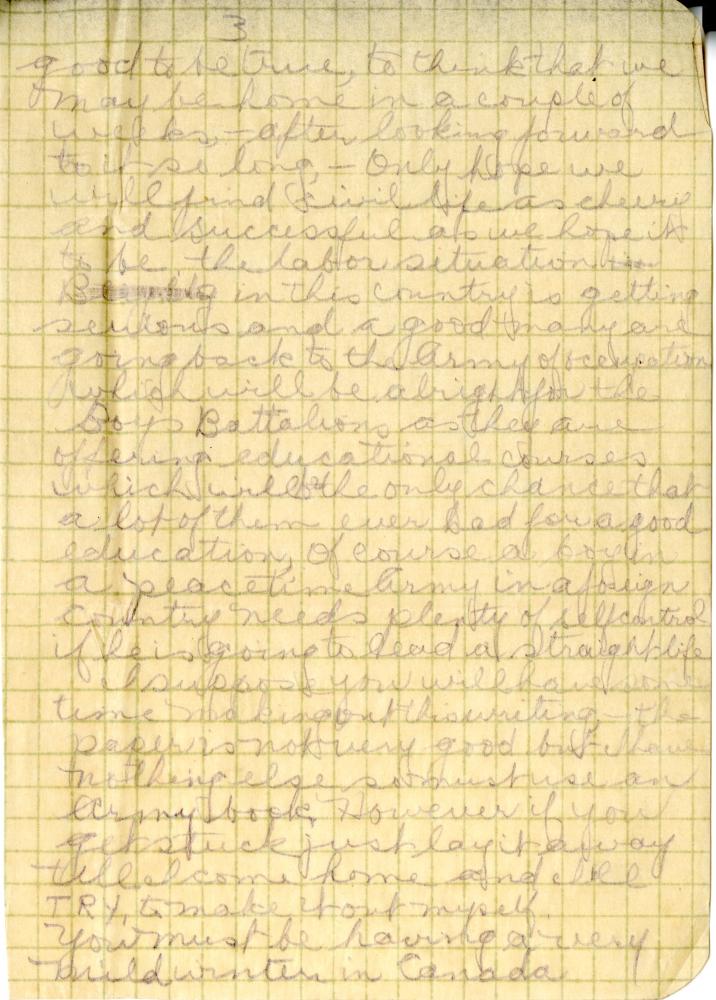 3
good to be true, to think that we
may be home in a couple of
weeks, – after looking forward
to it so long, – Only hope we
will find civil life as cheery
and successful as we hope it
to be the labor situation
in this country is getting
serious and a good many are
going back to the Army of occupation
which will be alright for the
Boys Battalions as they are
offering educational courses
which will be the only chance that
a lot of them ever had for a good
education, Of course a boy in
a peacetime Army in a foreign
country needs plenty of selfcontrol
if he is going to lead a straight life
I suppose you will have some
time making out this writing, – the
paper is not very good but I have
nothing else so must use an
Army book, However if you
get stuck just lay it away
till I come home and I'll
TRY, to make it out myself.
You must be having a very
mild winter in Canada